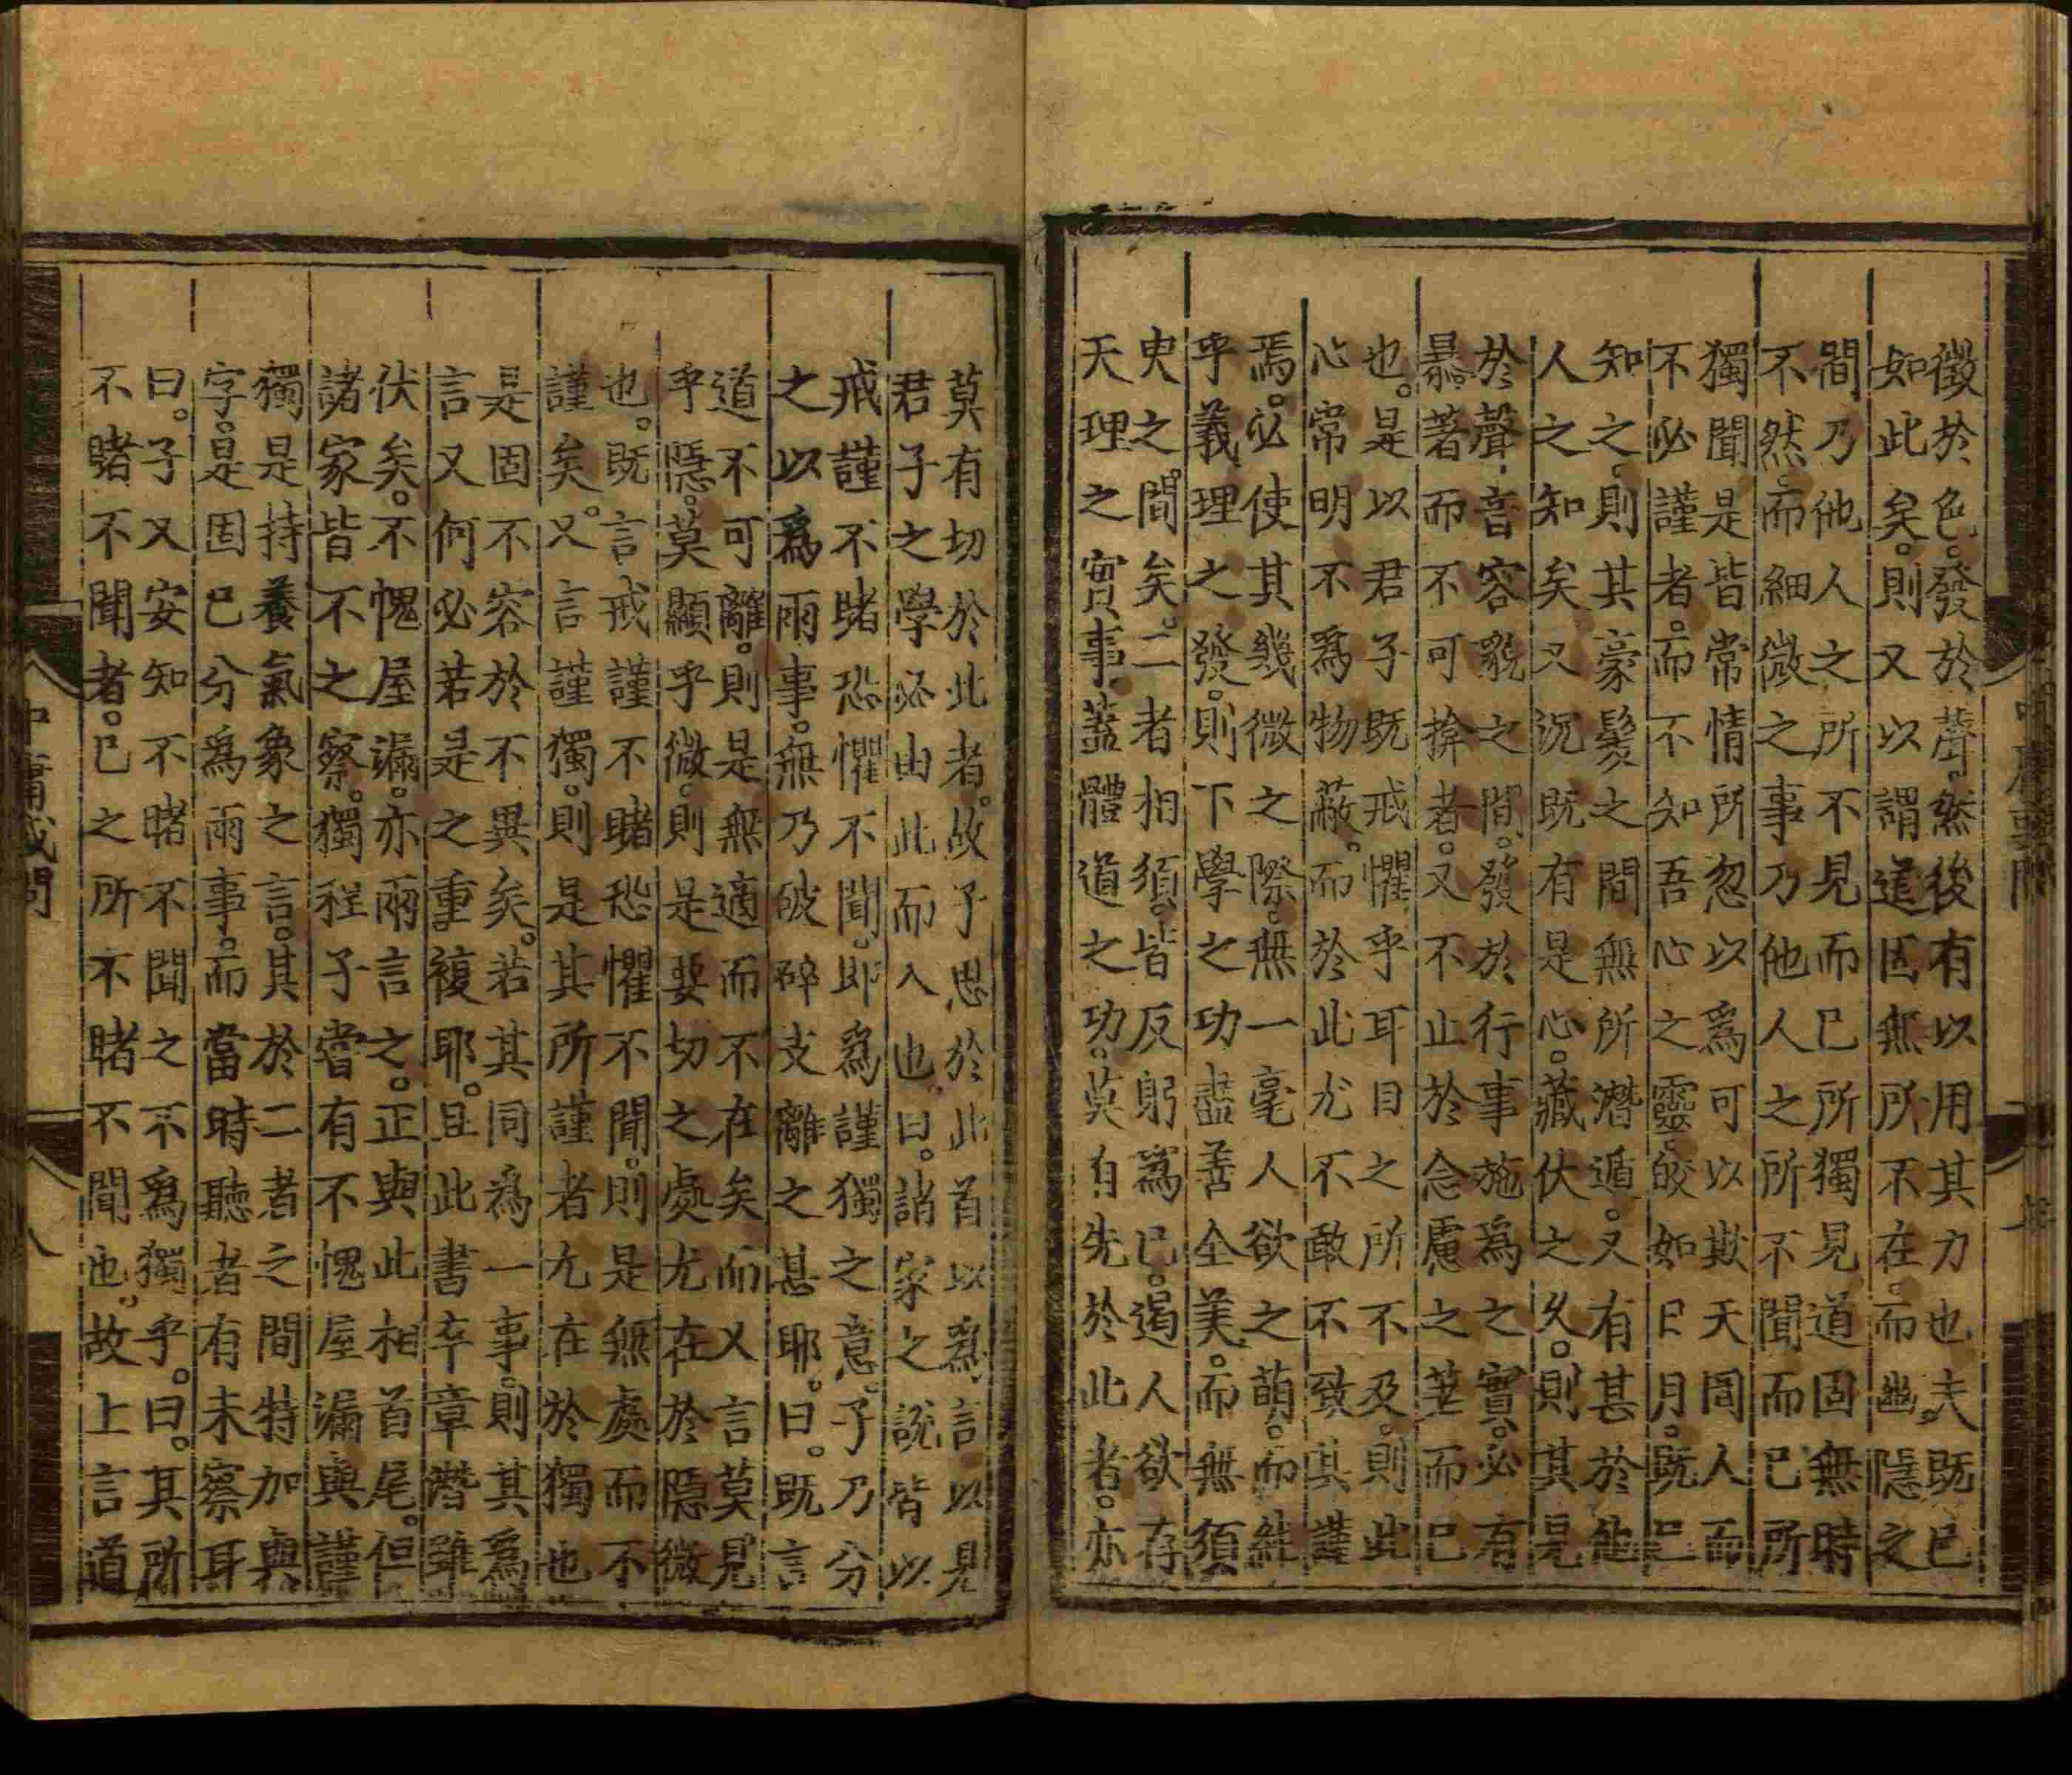 徵於色。發於聲。然後有以用其力也夫既已
如此矣。則又以謂道固無所不在。而幽隱之
間乃他人之所不見而已所獨見。道固無時
不然。而細微之事乃他人之所不聞而已所
獨聞是皆常情所忽以爲可以欺天罔人而
不必謹者。而不知吾心之靈。皎如日月。既已
知之。則其豪髮之間無所潛遁。又有甚於他
人之知矣又況既有是心。藏伏之久。則其見
於聲音容貌之間。發於行事施爲之實。必有
暴著而不可揜者。又不止於念慮之差而已
也。是以君子既戒懼乎耳目之所不及。則此
心常明不爲物蔽。而於此尤不敢不致其謹
焉。必使其幾微之際。無一毫人欲之萌。而純
乎義理之發。則下學之功盡善全美。而無須
臾之間矣。二者相須。皆反躬爲已。遏人欲存
天理之實事。蓋體道之功。莫有先於此者。亦
莫有切於此者。故子思於此首以爲言以見
君子之學必由此而入也。曰。諸家之說皆以
戒謹不睹恐懼不聞。即爲謹獨之意。子乃分
之以爲兩事。無乃破碎支離之甚耶。曰。既言
道不可離。則是無適而不在矣而又言莫見
乎隱。莫顯乎微。則是要切之處尤在於隱微
也。既言戒謹不睹恐懼不聞。則是無處而不
謹矣。又言謹獨。則是其所謹者尤在於獨也
是固不容於不異矣。若其同爲一事。則其爲
言又何必若是之重複耶。且此書卒章潛雖
伏矣。不愧屋漏。亦兩言之。正與此相首尾。但
諸家皆不之察。獨程子嘗有不愧屋漏與謹
獨是持養氣象之言。其於二者之間特加與
字。是固已分爲兩事。而當時聽者有未察耳
曰。子又安知不睹不聞之不爲獨乎。曰。其所
不睹不聞者。已之所不睹不聞也。故上言道
中庸或問
八